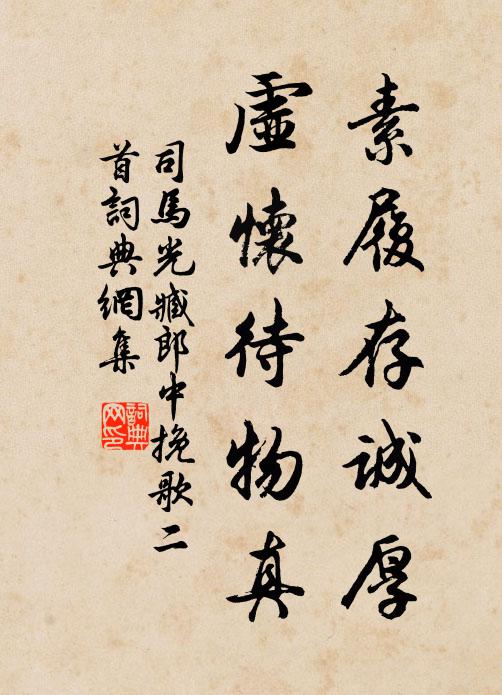 素履存誠厚
虛懷待物真
司馬光臧郎中挽歌二
首詞典網集
詞典网印